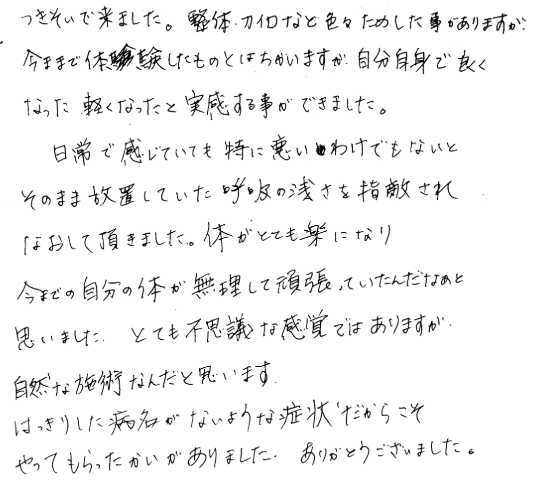 つきそいで来ました。整体、カイロなど色々ためした事がありますが、
今まで体験したものとはちがいますが、自分自身で良く
なった 軽くなったと実感する事ができました。
日常で感じていても特に悪いわけでもないと
そのまま放置していた呼吸の浅さを指敵され
なおして頂きました。体がとても楽になり
今までの自分の体が無理して頑張っていたんだなあと
思いました。とても不思議な感覚ではありますが、
自然な施術なんだと思います。
はっきりした病名がないような症状だからこそ
やってもらったかいがありました。ありがとうございました。